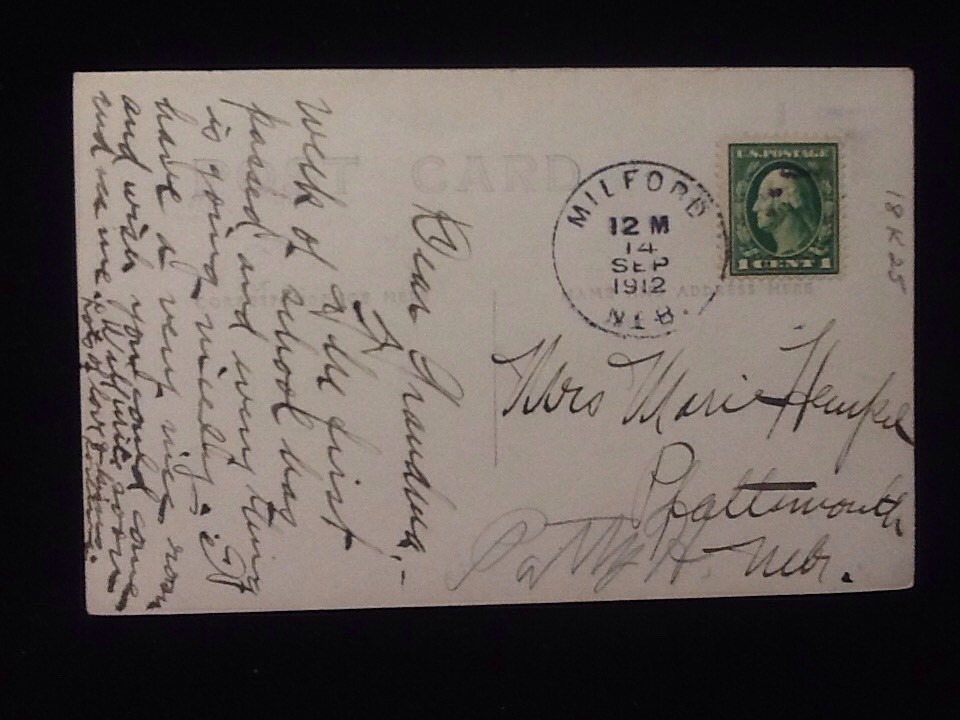 POST CARD
CORRESPONDENCE HERE
NAME AND ADDRESS HERE
U.S. POSTAGE
1 CENT 1
MILFORD
12 M
14
SEP
1912
NEB.
18 K 25
Dear Grandma,-
The first
week of school has
passed and every thing
is going nicely. I
have a very nice room
and wish you could come
and see me. Write soon
Lots of love &
Mrs Marie
Plattsmouth
Nebr.